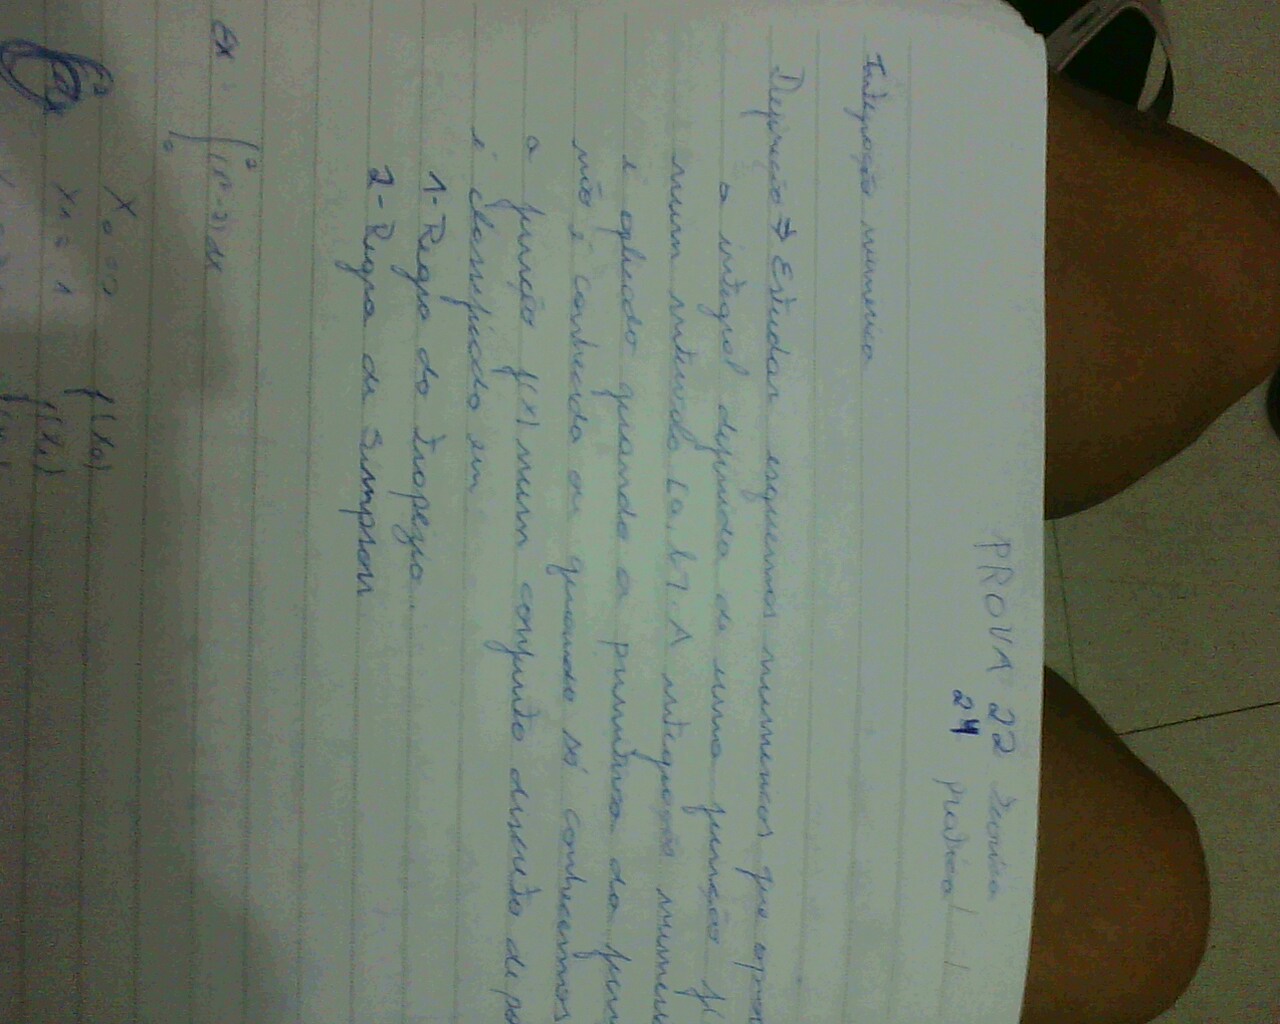 PROVA 22 teorica
24 pratica!
Integração numerica
Definicão → Estudar esquemas numericos que aprox
a integral definida de uma função f(
num intervalo [a, b]. A integração numeri
é aplicado quando a primitiva da fun
não é conhecida ou quando só conhecemos
a função f(x) num conjunto discreto de po
é classificado em
1- Regra do Trapezio.
2- Regra de Simpson
Ex ∫ dx
X0 = 0 f(x0)
X1 = 1 f(x1)